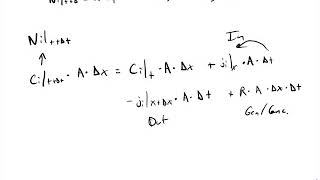 Ni|t+Δt
In
Ci|t+Δt · A · Δx = Ci|t · A · Δx + ji|x · A · Δt
- ji|x+Δx · A · Δt + R · A · Δx · Δt
Out Gen/Conc.